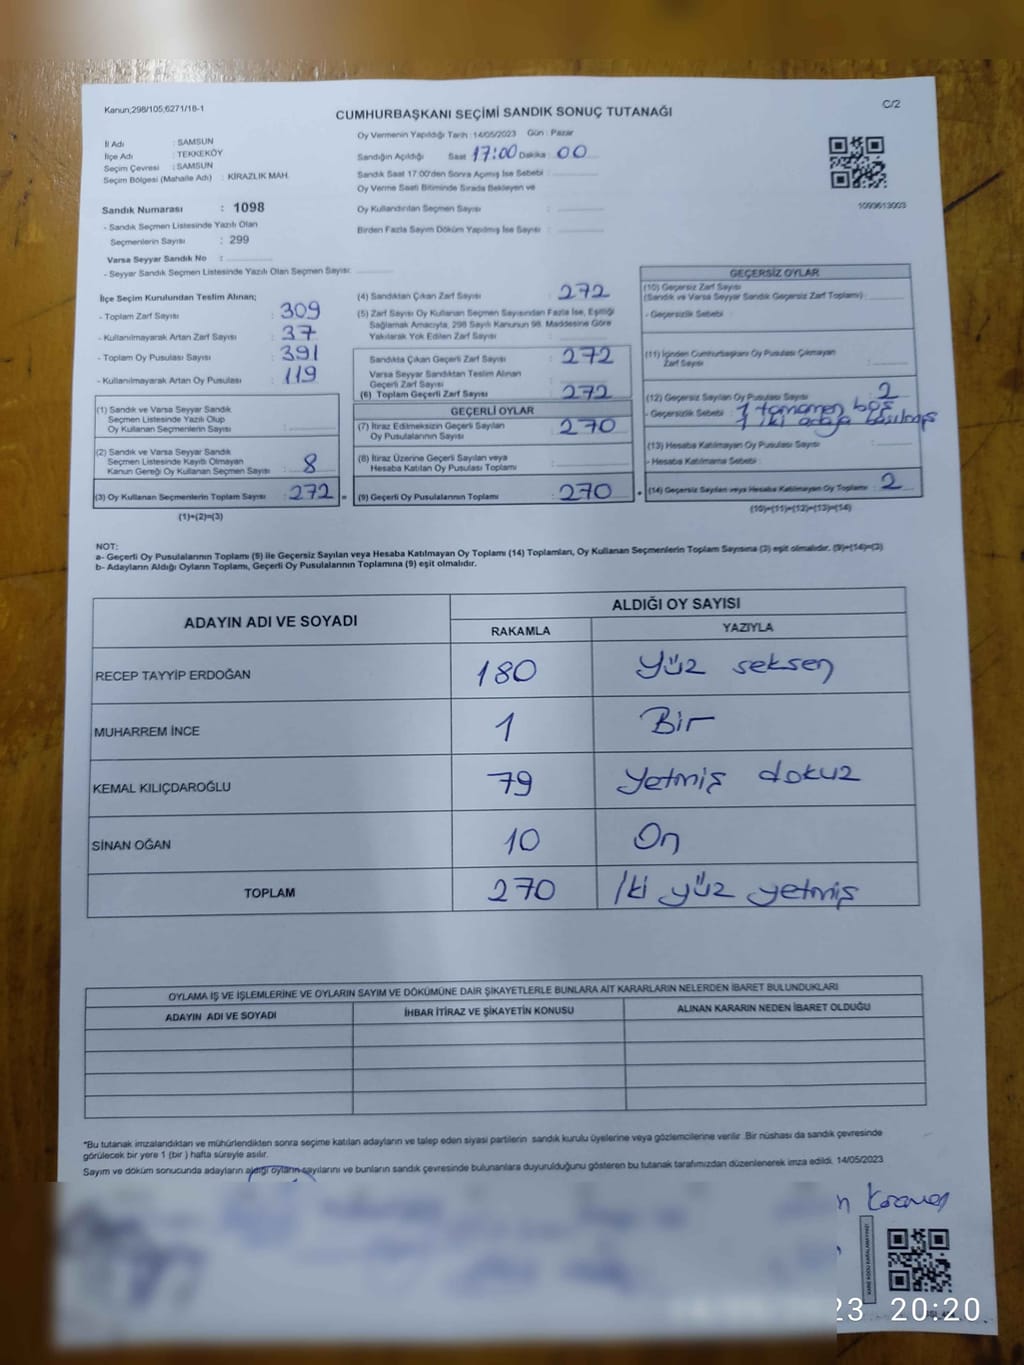 Kanun;298/105;6271/18-1
C/2
CUMHURBAŞKANI SEÇİMİ SANDIK SONUÇ TUTANAĞI
İl Adı : SAMSUN
İlçe Adı : TEKKEKÖY
Seçim Çevresi : SAMSUN
Seçim Bölgesi (Mahalle Adı) : KİRAZLIK MAH.
Oy Vermenin Yapıldığı Tarih :14/05/2023 Gün : Pazar
Sandığın Açıldığı Saat 17:00 Dakika : 00
Sandık Saat 17:00'den Sonra Açmış İse Sebebi :
Oy Verme Saati Bitiminde Sırada Bekleyen ve
Oy Kullandırılan Seçmen Sayısı :
Birden Fazla Sayım Döküm Yapılmış İse Sayısı :
1093613003
Sandık Numarası : 1098
- Sandık Seçmen Listesinde Yazılı Olan
Seçmenlerin Sayısı : 299
Varsa Seyyar Sandık No :
- Seyyar Sandık Seçmen Listesinde Yazılı Olan Seçmen Sayısı:
İlçe Seçim Kurulundan Teslim Alınan;
- Toplam Zarf Sayısı : 309
- Kullanılmayarak Artan Zarf Sayısı : 37
- Toplam Oy Pusulası Sayısı : 391
- Kullanılmayarak Artan Oy Pusulası : 119
(1) Sandık ve Varsa Seyyar Sandık
Seçmen Listesinde Yazılı Olup
Oy Kullanan Seçmenlerin Sayısı :
(2) Sandık ve Varsa Seyyar Sandık
Seçmen Listesinde Kayıtlı Olmayan
Kanun Gereği Oy Kullanan Seçmen Sayısı : 8
(3) Oy Kullanan Seçmenlerin Toplam Sayısı : 272 =
(1)+(2)=(3)
(4) Sandıktan Çıkan Zarf Sayısı : 272
(5) Zarf Sayısı Oy Kullanan Seçmen Sayısından Fazla İse, Eşitliği
Sağlamak Amacıyla, 298 Sayılı Kanunun 98. Maddesine Göre
Yakılarak Yok Edilen Zarf Sayısı :
Sandıkta Çıkan Geçerli Zarf Sayısı : 272
Varsa Seyyar Sandıktan Teslim Alınan
Geçerli Zarf Sayısı :
(6) Toplam Geçerli Zarf Sayısı : 272
GEÇERLİ OYLAR
(7) İtiraz Edilmeksizin Geçerli Sayılan
Oy Pusulalarının Sayısı : 270
(8) İtiraz Üzerine Geçerli Sayılan veya
Hesaba Katılan Oy Pusulası Toplamı :
(9) Geçerli Oy Pusulalarının Toplamı : 270 +
GEÇERSİZ OYLAR
(10) Geçersiz Zarf Sayısı
(Sandık ve Varsa Seyyar Sandık Geçersiz Zarf Toplamı) :
- Geçersizlik Sebebi :
(11) İçinden Cumhurbaşkanı Oy Pusulası Çıkmayan
Zarf Sayısı :
(12) Geçersiz Sayılan Oy Pusulası Sayısı : 2
- Geçersizlik Sebebi : 1 tamamen boş
1 iki adaya basılmış
(13) Hesaba Katılmayan Oy Pusulası Sayısı :
- Hesaba Katılmama Sebebi :
(14) Geçersiz Sayılan veya Hesaba Katılmayan Oy Toplamı : 2
(10)+(11)+(12)+(13)=(14)
NOT:
a- Geçerli Oy Pusulalarının Toplamı (9) ile Geçersiz Sayılan veya Hesaba Katılmayan Oy Toplamı (14) Toplamları, Oy Kullanan Seçmenlerin Toplam Sayısına (3) eşit olmalıdır. (9)+(14)=(3)
b- Adayların Aldığı Oyların Toplamı, Geçerli Oy Pusulalarının Toplamına (9) eşit olmalıdır.
ADAYIN ADI VE SOYADI
ALDIĞI OY SAYISI
RAKAMLA YAZIYLA
RECEP TAYYİP ERDOĞAN 180 Yüz seksen
MUHARREM İNCE 1 Bir
KEMAL KILIÇDAROĞLU 79 Yetmiş dokuz
SİNAN OĞAN 10 On
TOPLAM 270 İki yüz yetmiş
OYLAMA İŞ VE İŞLEMLERİNE VE OYLARIN SAYIM VE DÖKÜMÜNE DAİR ŞİKAYETLERLE BUNLARA AİT KARARLARIN NELERDEN İBARET BULUNDUKLARI
ADAYIN ADI VE SOYADI İHBAR İTİRAZ VE ŞİKAYETİN KONUSU ALINAN KARARIN NEDEN İBARET OLDUĞU
*Bu tutanak imzalandıktan ve mühürlendikten sonra seçime katılan adayların ve talep eden siyasi partilerin sandık kurulu üyelerine veya gözlemcilerine verilir .Bir nüshası da sandık çevresinde
görülecek bir yere 1 (bir ) hafta süreyle asılır.
Sayım ve döküm sonucunda adayların aldığı oyların sayılarını ve bunların sandık çevresinde bulunanlara duyurulduğunu gösteren bu tutanak tarafımızdan düzenlenerek imza edildi. 14/05/2023
23 20:20